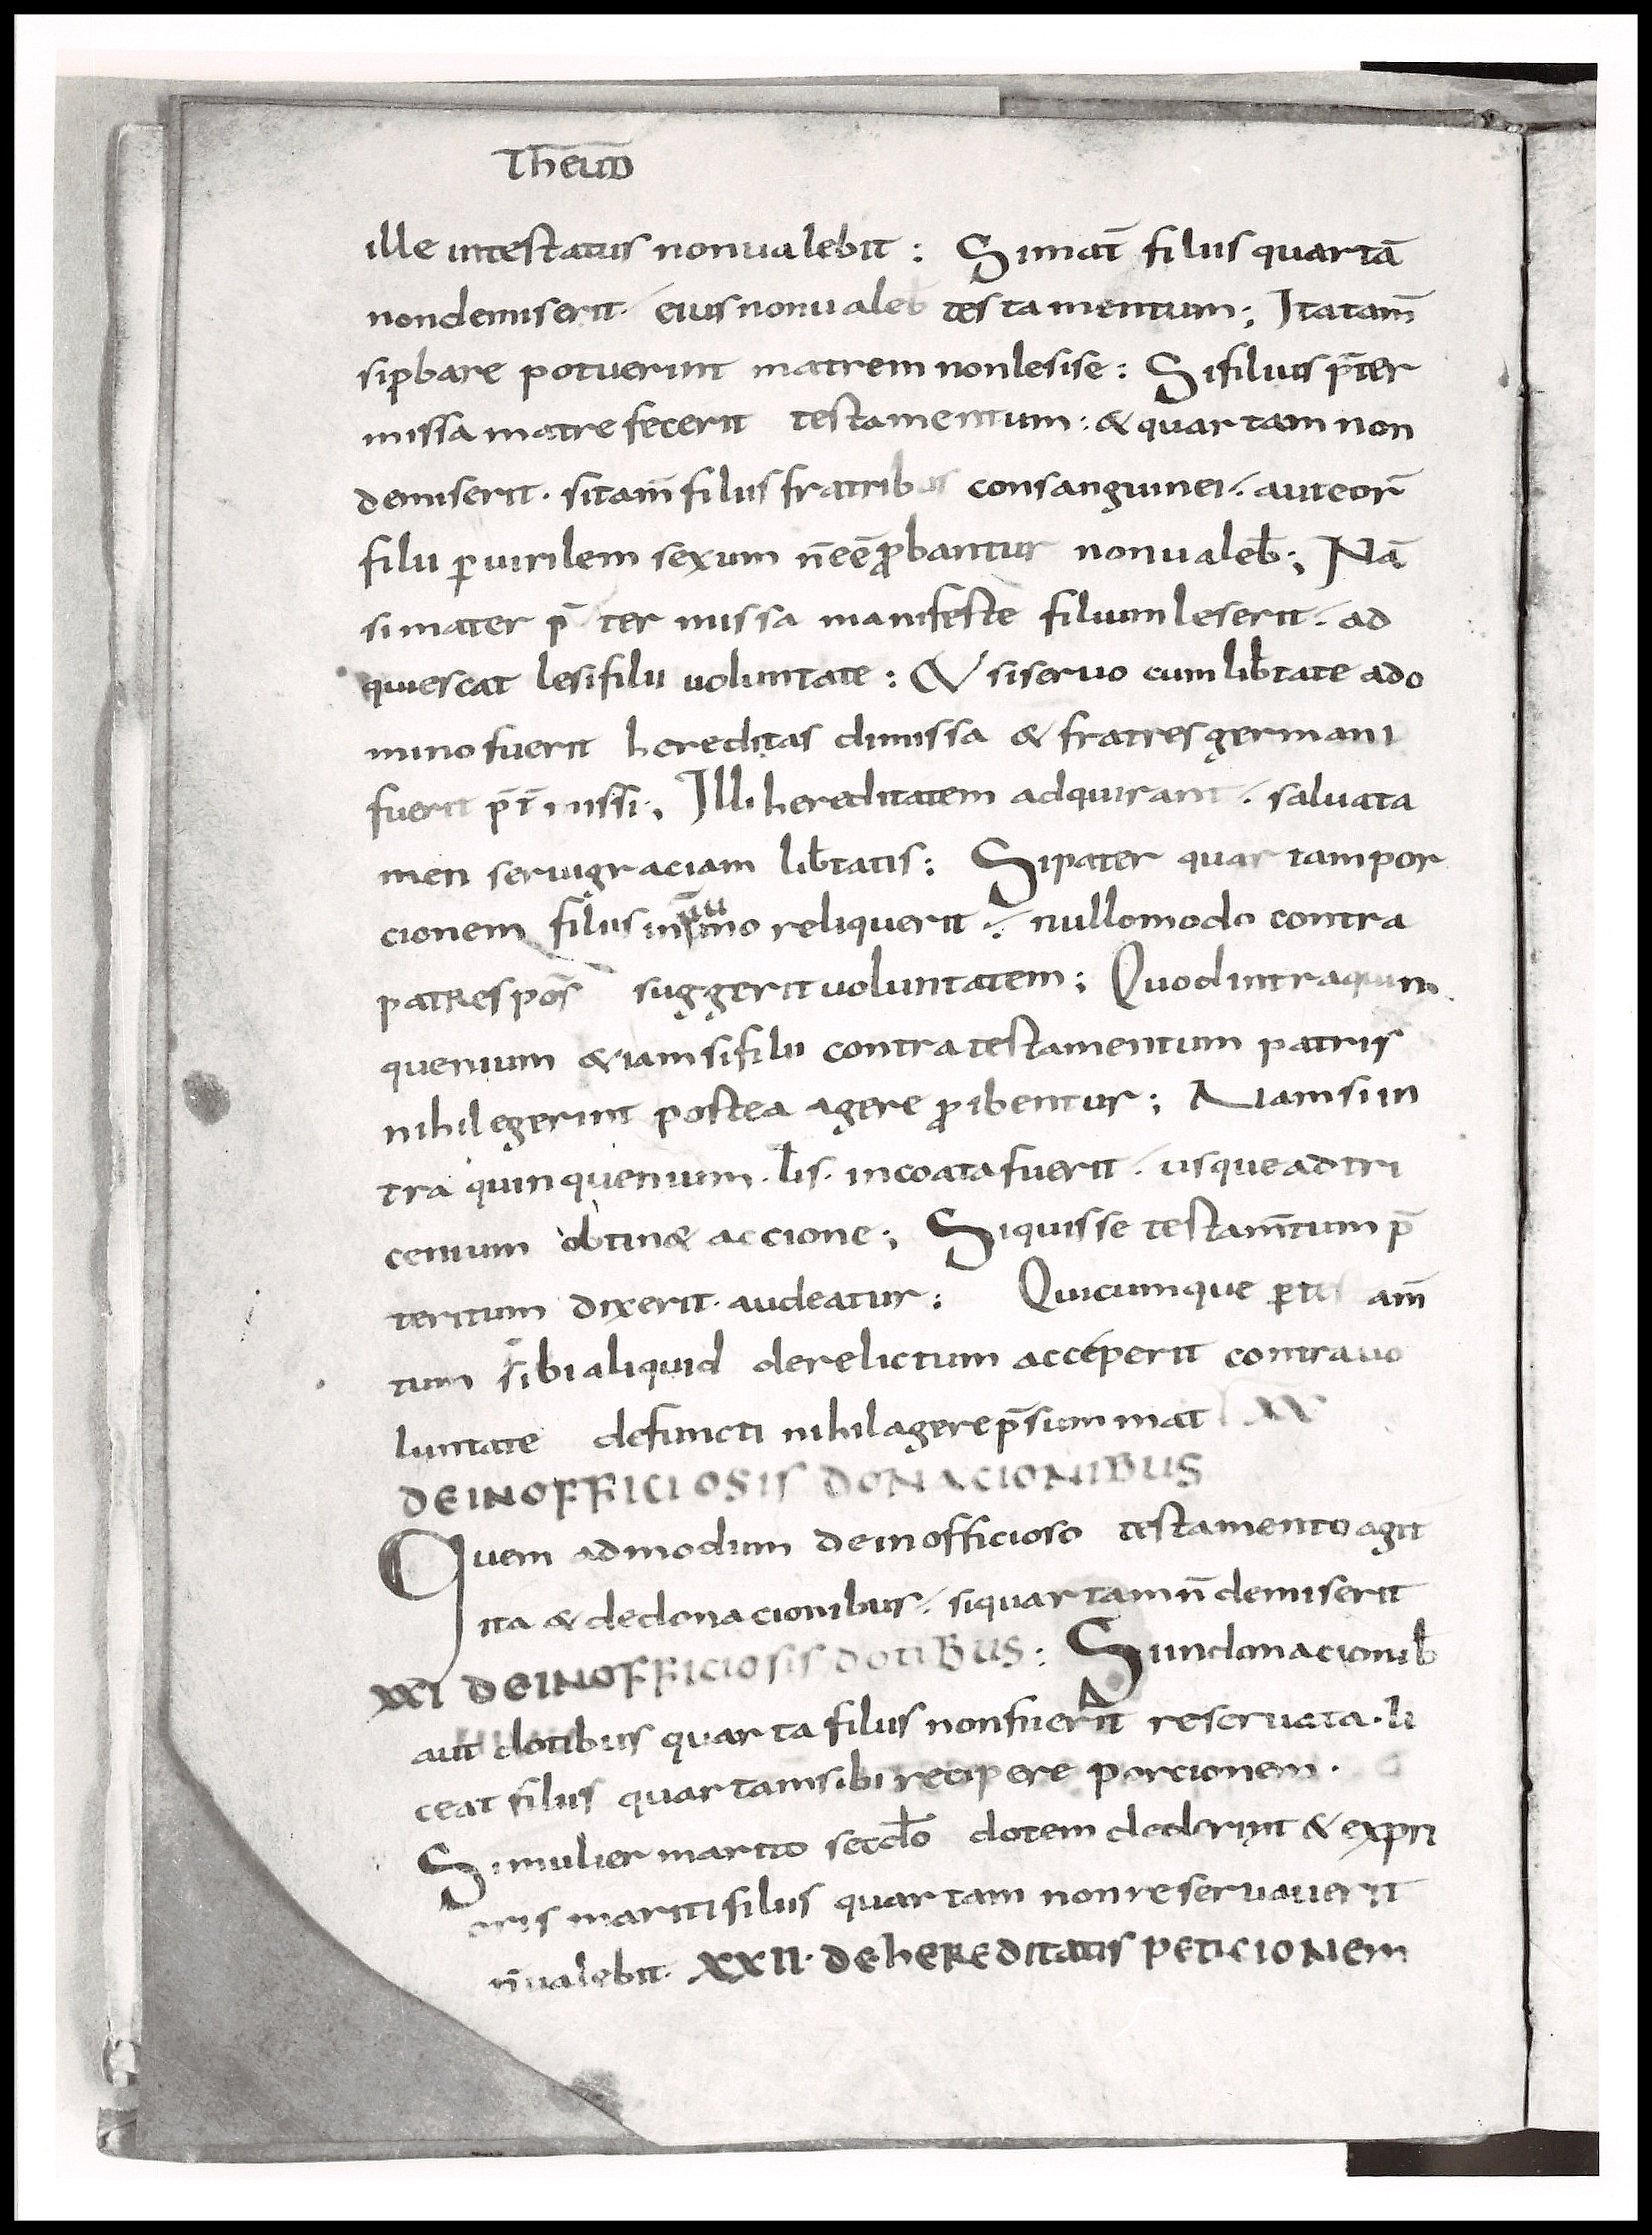 Theud
ille intestatus nonualebit : Simat̄ filiis quartā
nondemiserit · eiusnonualeb testamentum ; Itatam̄
sipbare potuerint matrem nonlesise : Sifilius p̄ter
missa matre fecerit testamentum : & quartam non
demiserit · sitam̄ filiis fratribus consanguinei · auteor̄
filii ꝑ uirilem sexum n̄eēꝓbantur nonualeƀ ; Nā
simater p̄ ter missa manifeste filiumleserit · ad
quiescat lesifilii uoluntate : & siseruo cumlib̄tate ado
minofuerit hereditas dimissa & fratresgermani
fuerit p̄t̄missi ; Illi hereditatem adquirant · saluata
men seruigraciam lib̄tatis : Sipater quartampor
cionem filiis reliquerit · nullomodo contra
patrespos̄ suggerituoluntatem ; Quodintraquin
quenium &iamsifilii contratestamentum patris
nihilegerint postea agere ꝓibentur ; Namsiin
tra quinquenium · lis · incoatafuerit · usqueadtri
cenium obtin& accione ; Siquisse testam̄tum p̄
teritum dixerit · audeatur : Quicumque ꝑtes am̄
tum sibialiquid derelictum acceperit contrauo
luntate defuncti nihilagerep̄summat XX
DEINOFFICIOSIS DONACIONIBUS
Quem admodum deinofficioso testamentoagit
ita & dedonacionibus · siquartamn̄demiserit
XXI DEINOFFICIOSIS DOTIBUS : Siindonacionib̄
aut dotibus quarta filiis nonfuerit reseruata · li
ceat filiis quartamsibi recipere porcionem ·
Simulier marito secd̄o dotem dederint & expri
oris maritifiliis quartam nonreseruauerit
n̄ualebit · XXII · DE hEREDITATIS PETICIONEM